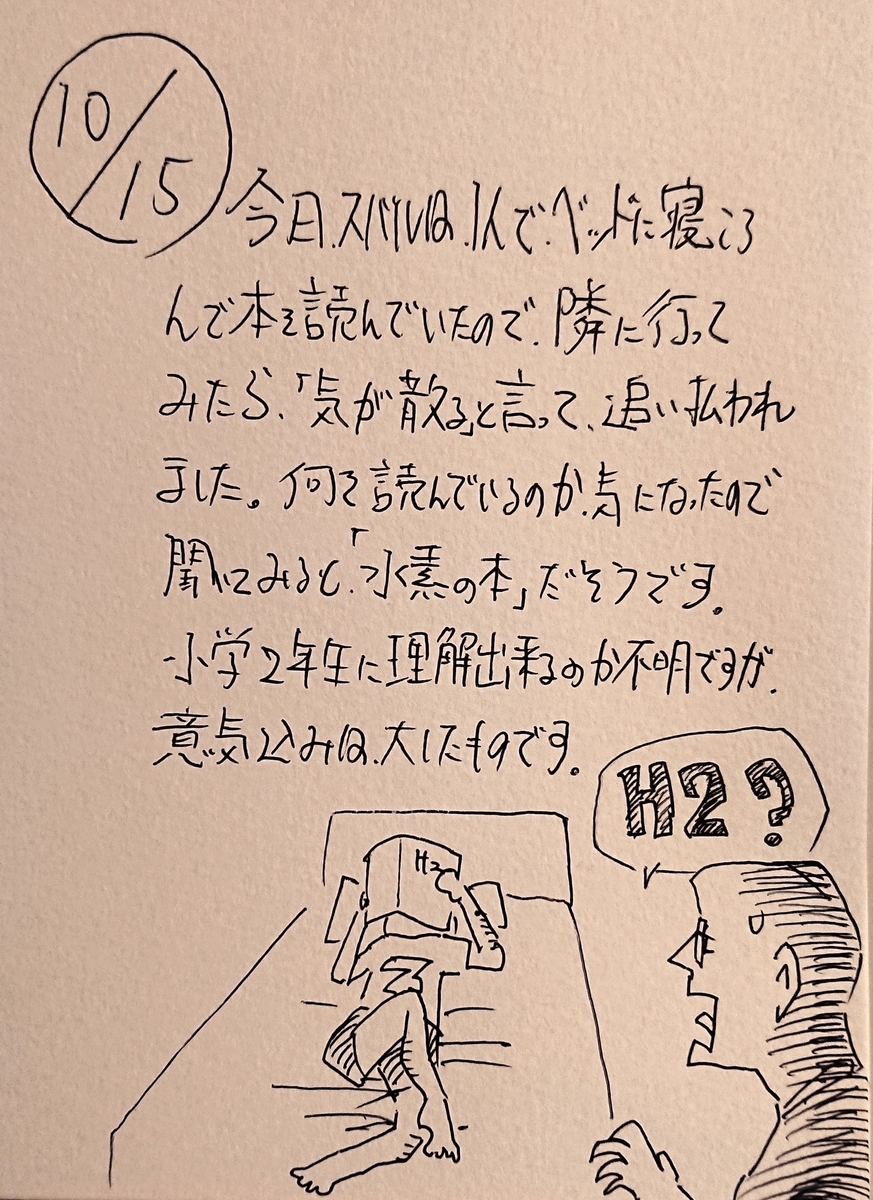 10/15
今日、スバルは、1人で、ベッドに寝ころ
んで本を読んでいたので、隣に行って
みたら、「気が散る」と言って、追い払われ
ました。何を読んでいるのか、気になったので
聞いてみると、「水素の本」だそうです。
小学2年生に理解出来るのか不明ですが、
意気込みは、大したものです。
H2?
H2